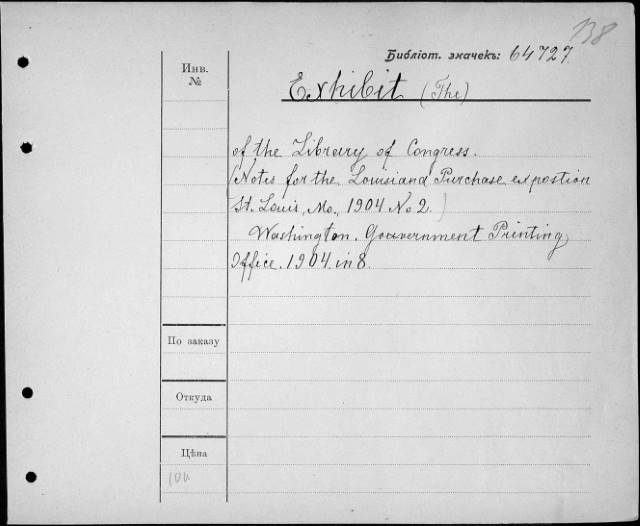 138
Библіот. значекъ: 64727.
Инв.
№
Exhibit (The)
of the Library of Congress.
(Notes for the Louisiana Purchase expostion
St. Louis, Mo., 1904 No 2.)
Washington. Gouvernment Printing
Office. 1904. in 8.
По заказу
Откуда
Цѣна